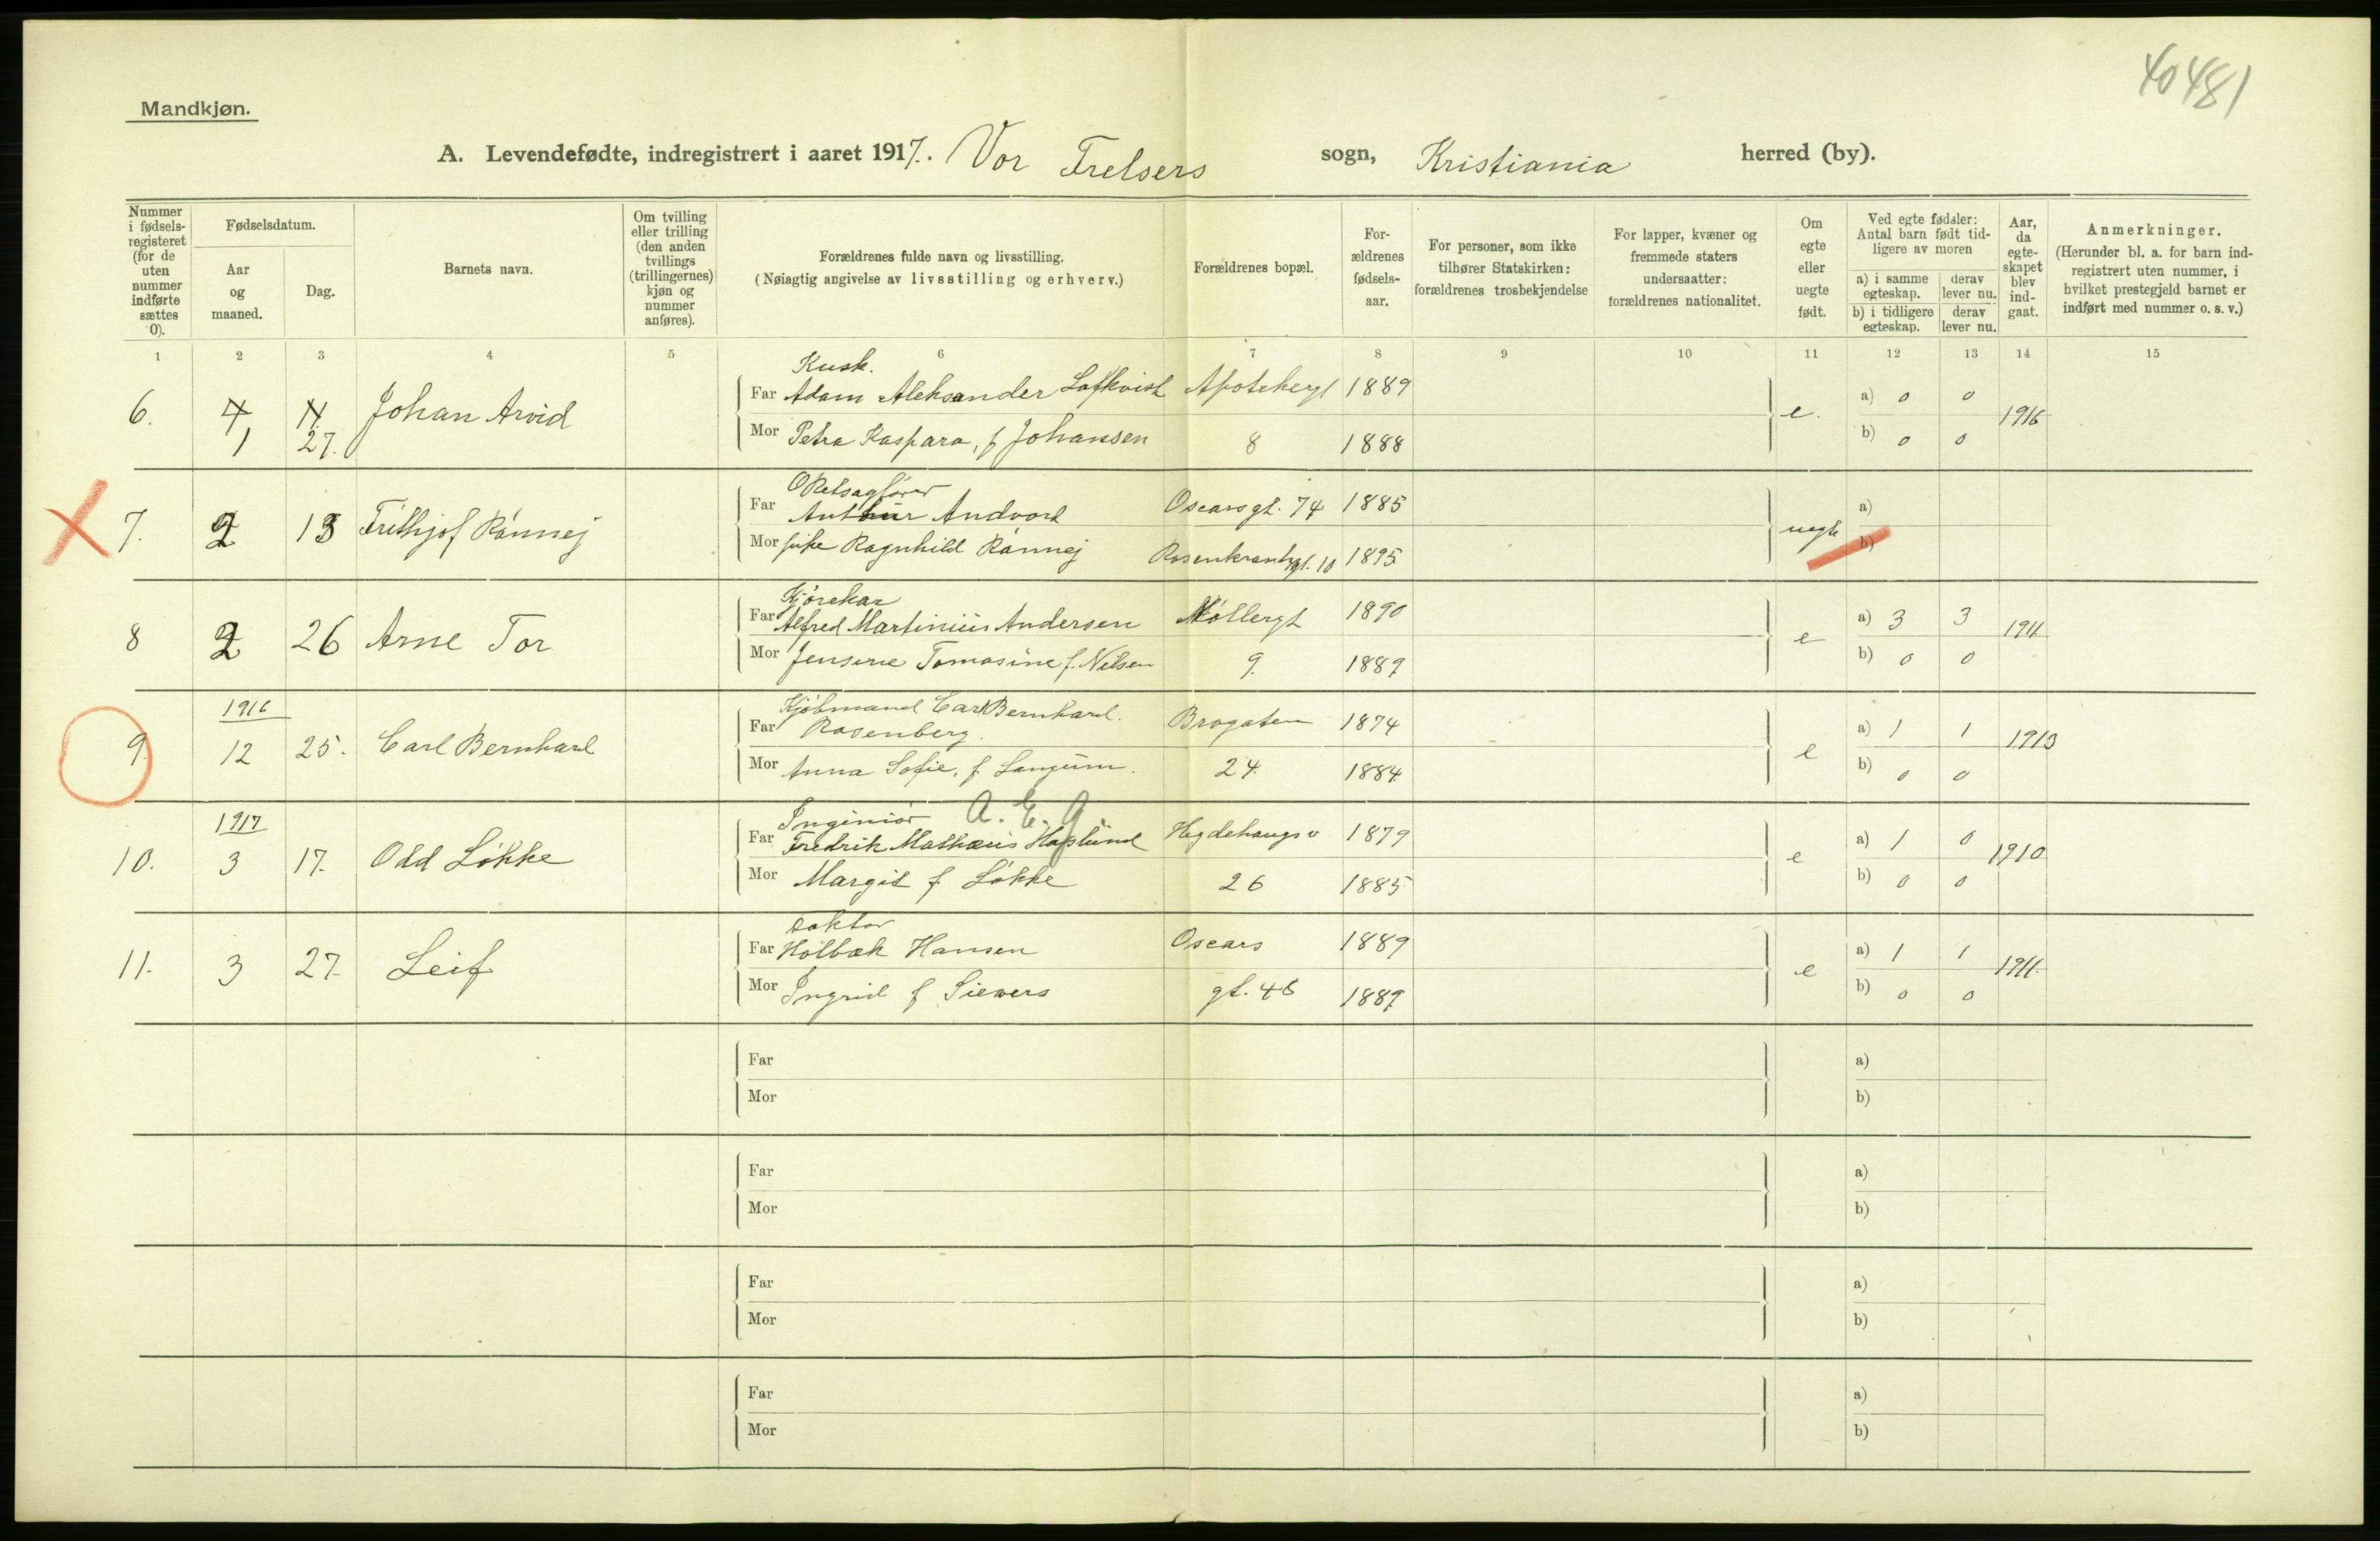 40481
Mandkjøn.
A. Levendefødte, indregistrert i aaret 1917. Vor Frelsers sogn, Kristiania herred (by).
Nummer i fødselsregisteret (for de uten nummer indførte sættes 0).
Fødselsdatum.
Aar og maaned.
Dag.
Barnets navn.
Om tvilling eller trilling (den anden tvillings (trillingernes) kjøn og nummer anføres).
Forældrenes fulde navn og livsstilling.
(Nøiagtig angivelse av livsstilling og erhverv.)
Forældrenes bopæl.
Forældrenes fødselsaar.
For personer, som ikke tilhører Statskirken: forældrenes trosbekjendelse
For lapper, kvæner og fremmede staters undersaatter: forældrenes nationalitet.
Om egte eller uegte født.
Ved egte fødsler: Antal barn født tidligere av moren
a) i samme egteskap. derav lever nu.
b) i tidligere egteskap. derav lever nu.
Aar, da egteskapet blev indgaat.
Anmerkninger.
(Herunder bl. a. for barn indregistrert uten nummer, i hvilket prestegjeld barnet er indført med nummer o. s. v.)
1 2 3 4 5 6 7 8 9 10 11 12 13 14 15
Kusk.
6. 4 Johan Arvid Far Adam Aleksander Apotekergt 1889 e. a) 0 0 1916
1 27. Mor Petra Kaspara, f Johansen 8 1888 b) 0 0
ORetsagfører
7. 2 13 Frithjof Rønnej Far Andvord Oscarsgt. 74 1885 uegte a)
Mor Ragnhild Rønnej Rosenkrantzgt. 10 1895 b)
Kjørekar
8 2 26 Arne Tor Far Alfred Martinius Andersen Møllergt 1890 e a) 3 3 1911
Mor Jensine Tomasine f. Nilsen 9. 1889 b) 0 0
1916 Kjøbmand Carl Bernhard.
9. 12 25. Carl Bernhard Far Rosenberg. Brogaten 1874 e a) 1 1 1913
Mor Anna Sofie, f. Langum. 24. 1884 b) 0 0
1917 Ingeniør A. E. G.
10. 3 17. Odd Løkke Far Fredrik Mathæus Haslund Hegdehaugsv 1879 e a) 1 0 1910
Mor Margit f. Løkke 26 1885 b) 0 0
Doktor
11. 3 27. Leif Far Holbæk Hansen Oscars 1889 e a) 1 1 1911.
Mor Ingrid f Siewers gt. 46 1889 b) 0 0
Far a)
Mor b)
Far a)
Mor b)
Far a)
Mor b)
Far a)
Mor b)